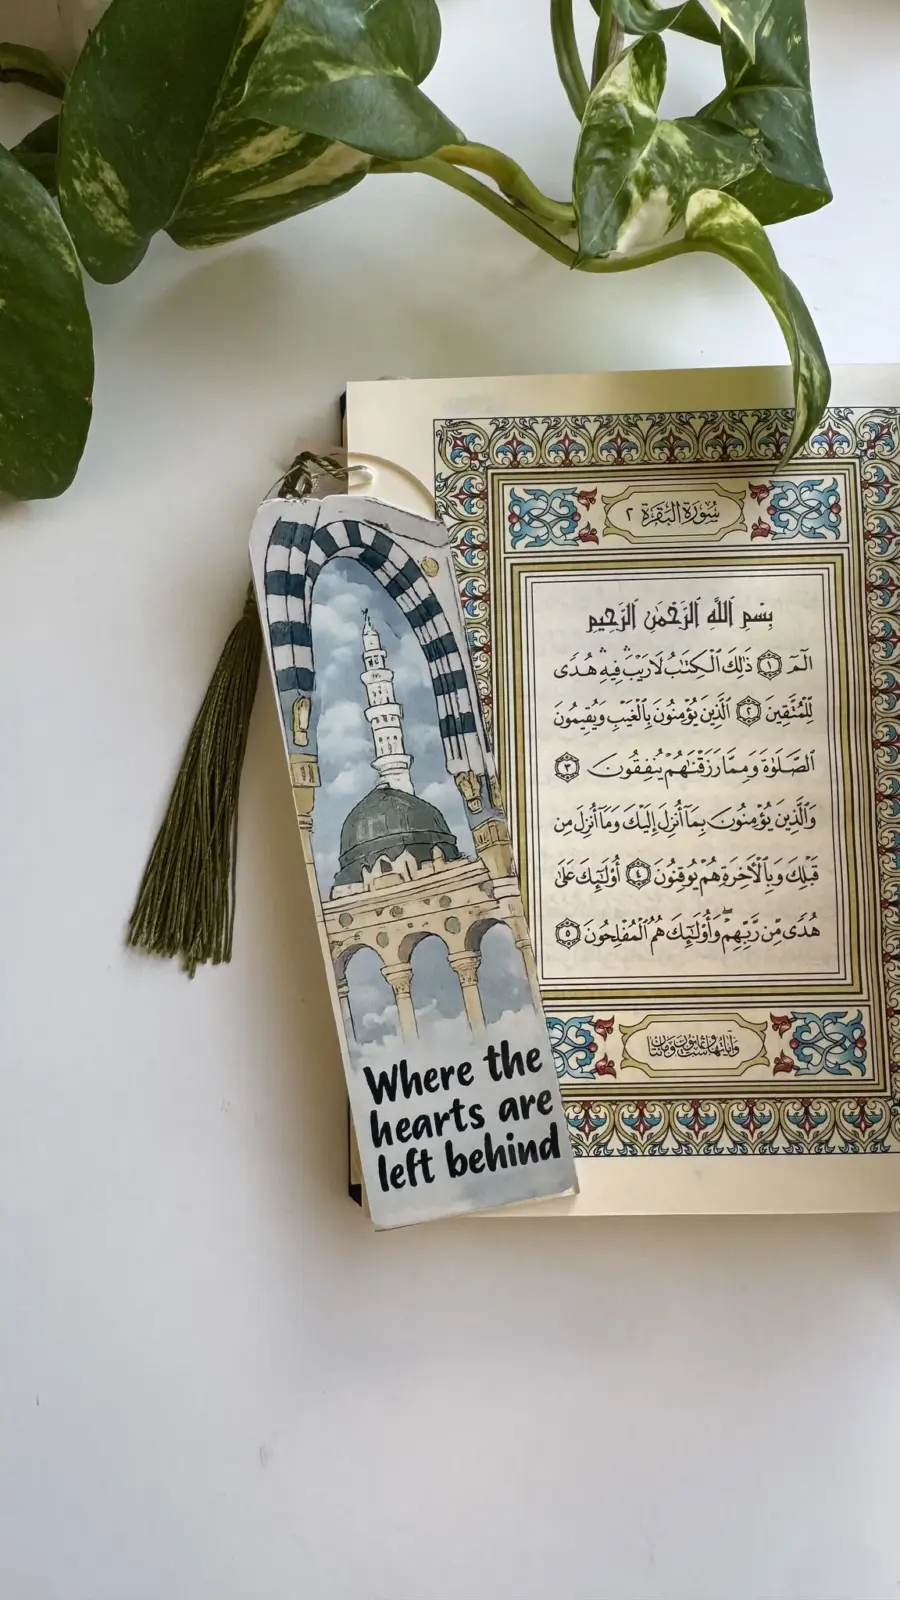 سُورَةُ البَقَرَةِ ٢
بِسْمِ ٱللَّهِ ٱلرَّحْمَٰنِ ٱلرَّحِيمِ
الٓمٓ ١ ذَٰلِكَ ٱلْكِتَٰبُ لَا رَيْبَ ۛ فِيهِ ۛ هُدًى
لِّلْمُتَّقِينَ ٢ ٱلَّذِينَ يُؤْمِنُونَ بِٱلْغَيْبِ وَيُقِيمُونَ
ٱلصَّلَوٰةَ وَمِمَّا رَزَقْنَٰهُمْ يُنفِقُونَ ٣
وَٱلَّذِينَ يُؤْمِنُونَ بِمَآ أُنزِلَ إِلَيْكَ وَمَآ أُنزِلَ مِن
قَبْلِكَ وَبِٱلْءَاخِرَةِ هُمْ يُوقِنُونَ ٤ أُو۟لَٰٓئِكَ عَلَىٰ
هُدًى مِّن رَّبِّهِمْ ۖ وَأُو۟لَٰٓئِكَ هُمُ ٱلْمُفْلِحُونَ ٥
Where the
hearts are
left behind